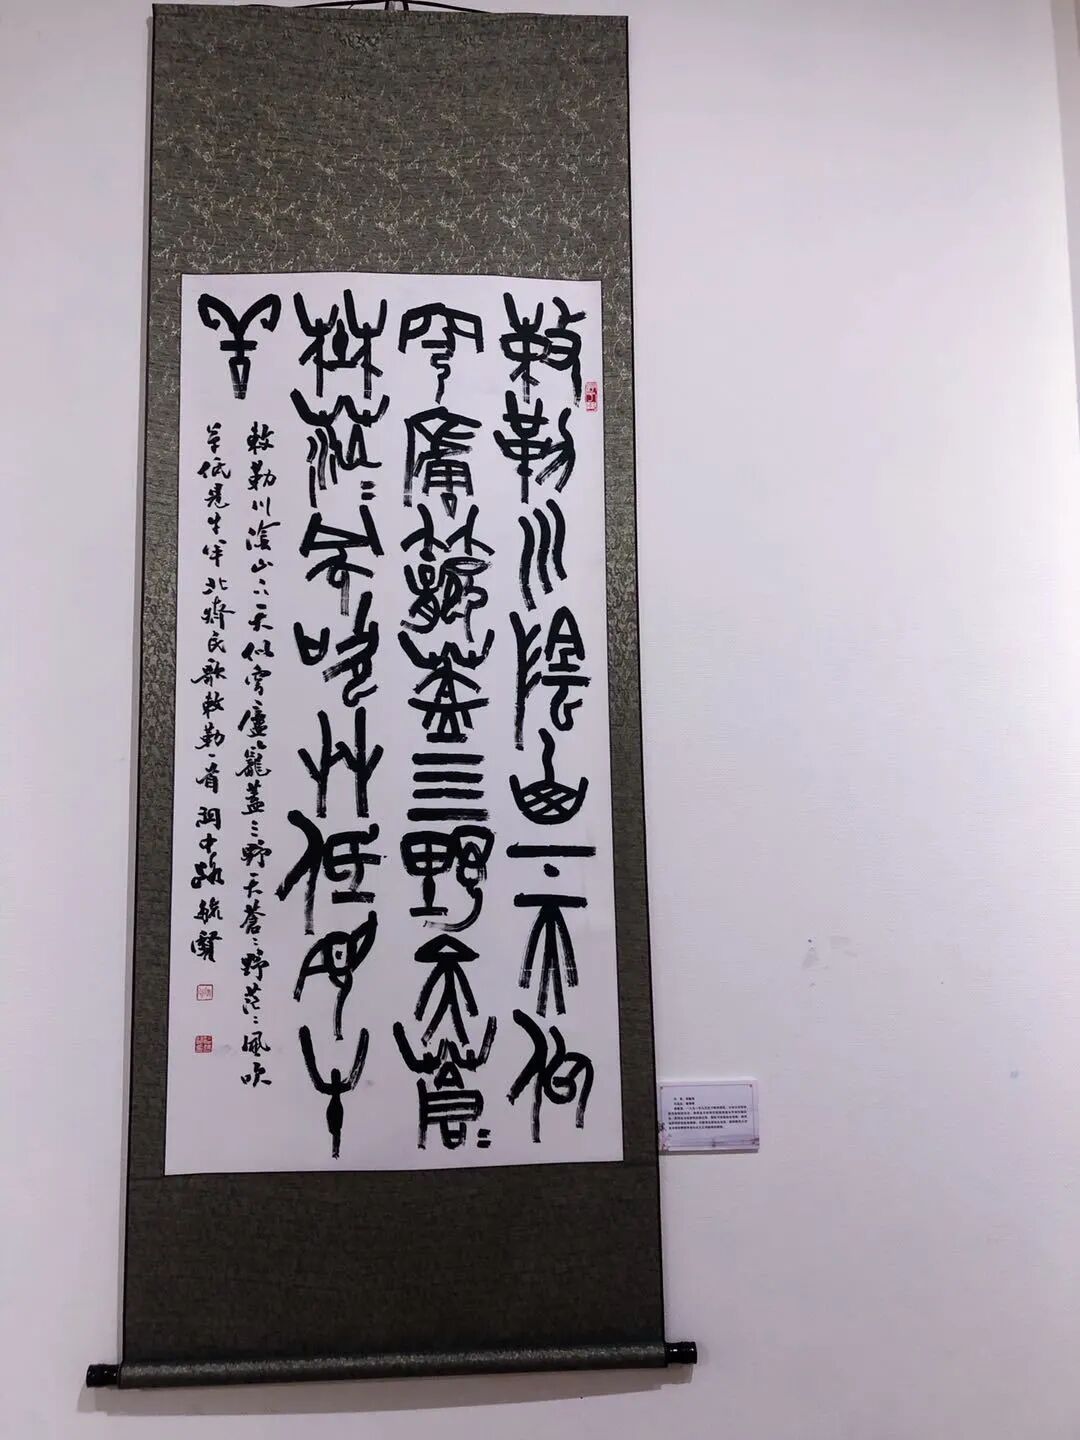 敕勒川陰山下天似
穹廬籠蓋亖野天蒼〻
野茫〻風吹艸低見牛
羊
敕勒川陰山下天似穹廬籠蓋亖野天蒼〻野茫〻風吹
草低見牛羊北齊民歌敕勒一首關中路毓賢